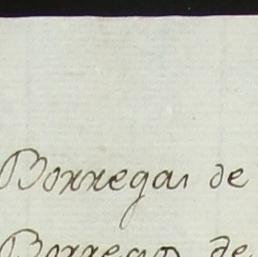 Borregas de
Borregas de